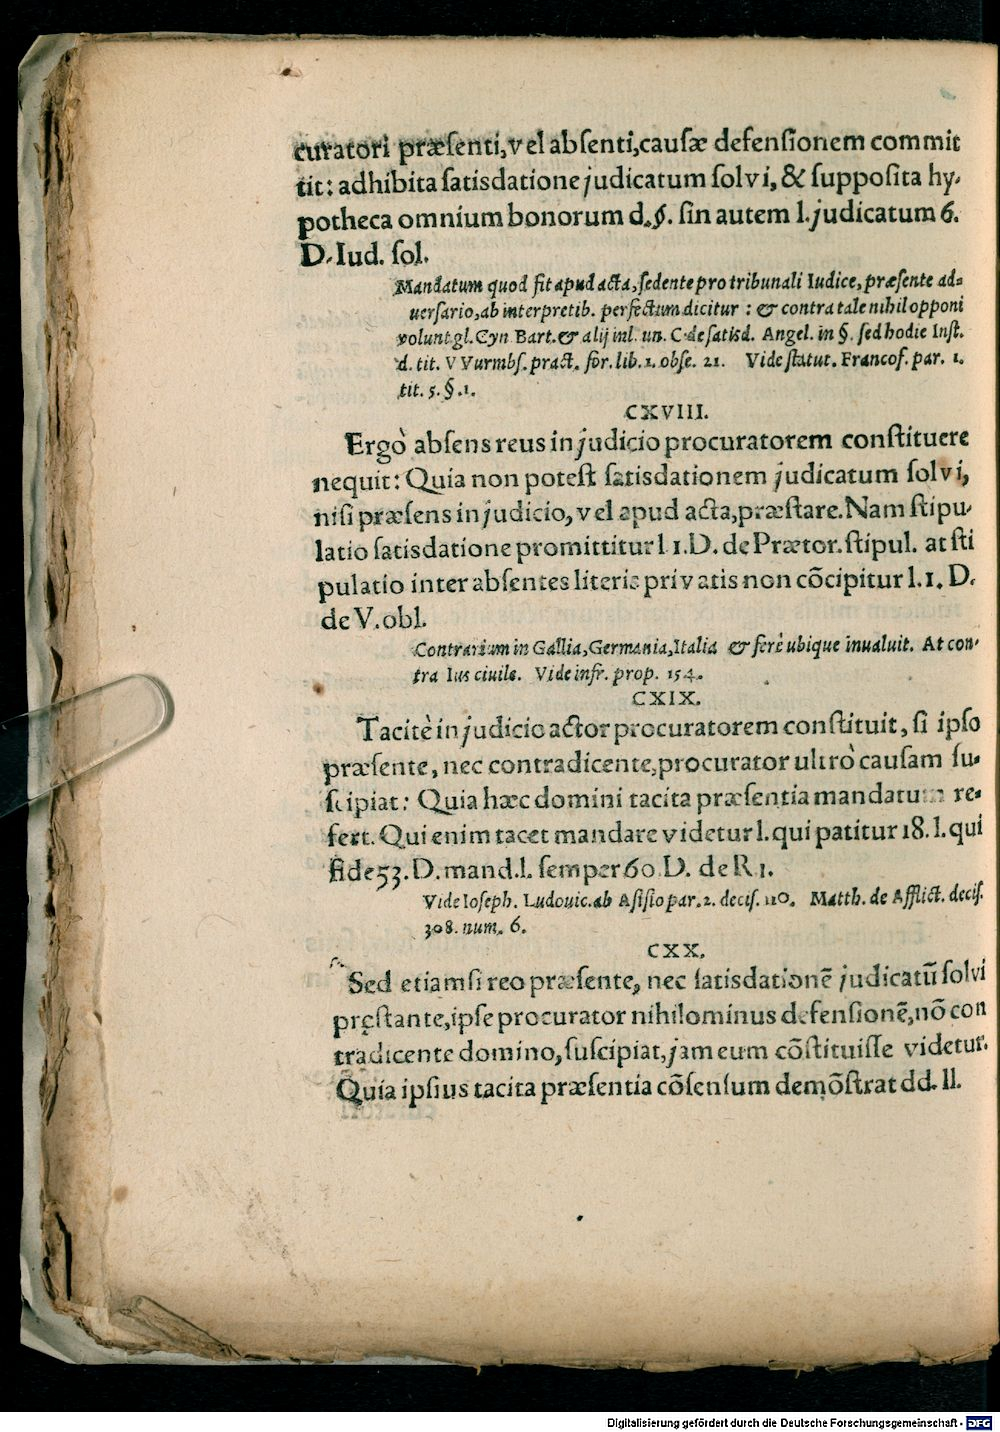 curatori præsenti, vel absenti, causæ defensionem commit
tit: adhibita satisdatione judicatum solvi, & supposita hy-
potheca omnium bonorum d. §. sin autem l. judicatum 6.
D. Iud. sol.
Mandatum quod fit apud acta, sedente pro tribunali Iudice, præsente ad-
uersario, ab interpretib. perfectum dicitur : & contra tale nihil opponi
volunt gl. Cyn Bart. & alij in l. un. C. de satisd. Angel. in §. sed hodie Inst.
d. tit. VVurmbs. pract. for. lib. 1. obse. 21. Vide statut. Francof. par. 1.
tit. 5. §. 1.
CXVIII.
Ergò absens reus in judicio procuratorem constituere
nequit: Quia non potest satisdationem judicatum solvi,
nisi præsens in judicio, vel apud acta, præstare. Nam stipu-
latio satisdatione promittitur l 1. D. de Prætor. stipul. at sti
pulatio inter absentes literis privatis non cõcipitur l. 1. D.
de V. obl.
Contrarium in Gallia, Germania, Italia & ferè ubique inualuit. At con-
tra Ius ciuile. Vide infr. prop. 154.
CXIX.
Tacitè in judicio actor procuratorem constituit, si ipso
præsente, nec contradicente, procurator ultrò causam su-
scipiat: Quia hæc domini tacita præsentia mandatum re-
fert. Qui enim tacet mandare videtur l. qui patitur 18. l. qui
fide 53. D. mand. l. semper 60 D. de R I.
Vide Ioseph. Ludouic. ab Asisio par. 2. decis. 110. Matth. de Afflict. decis.
308. num. 6.
CXX.
Sed etiamsi reo præsente, nec satisdationẽ judicatũ solvi
pręstante, ipse procurator nihilominus defensionẽ, nõ con
tradicente domino, suscipiat, jam eum cõstituisse videtur.
Quia ipsius tacita præsentia cõsensum demõstrat dd. ll.
Digitalisierung gefördert durch die Deutsche Forschungsgemeinschaft - DFG